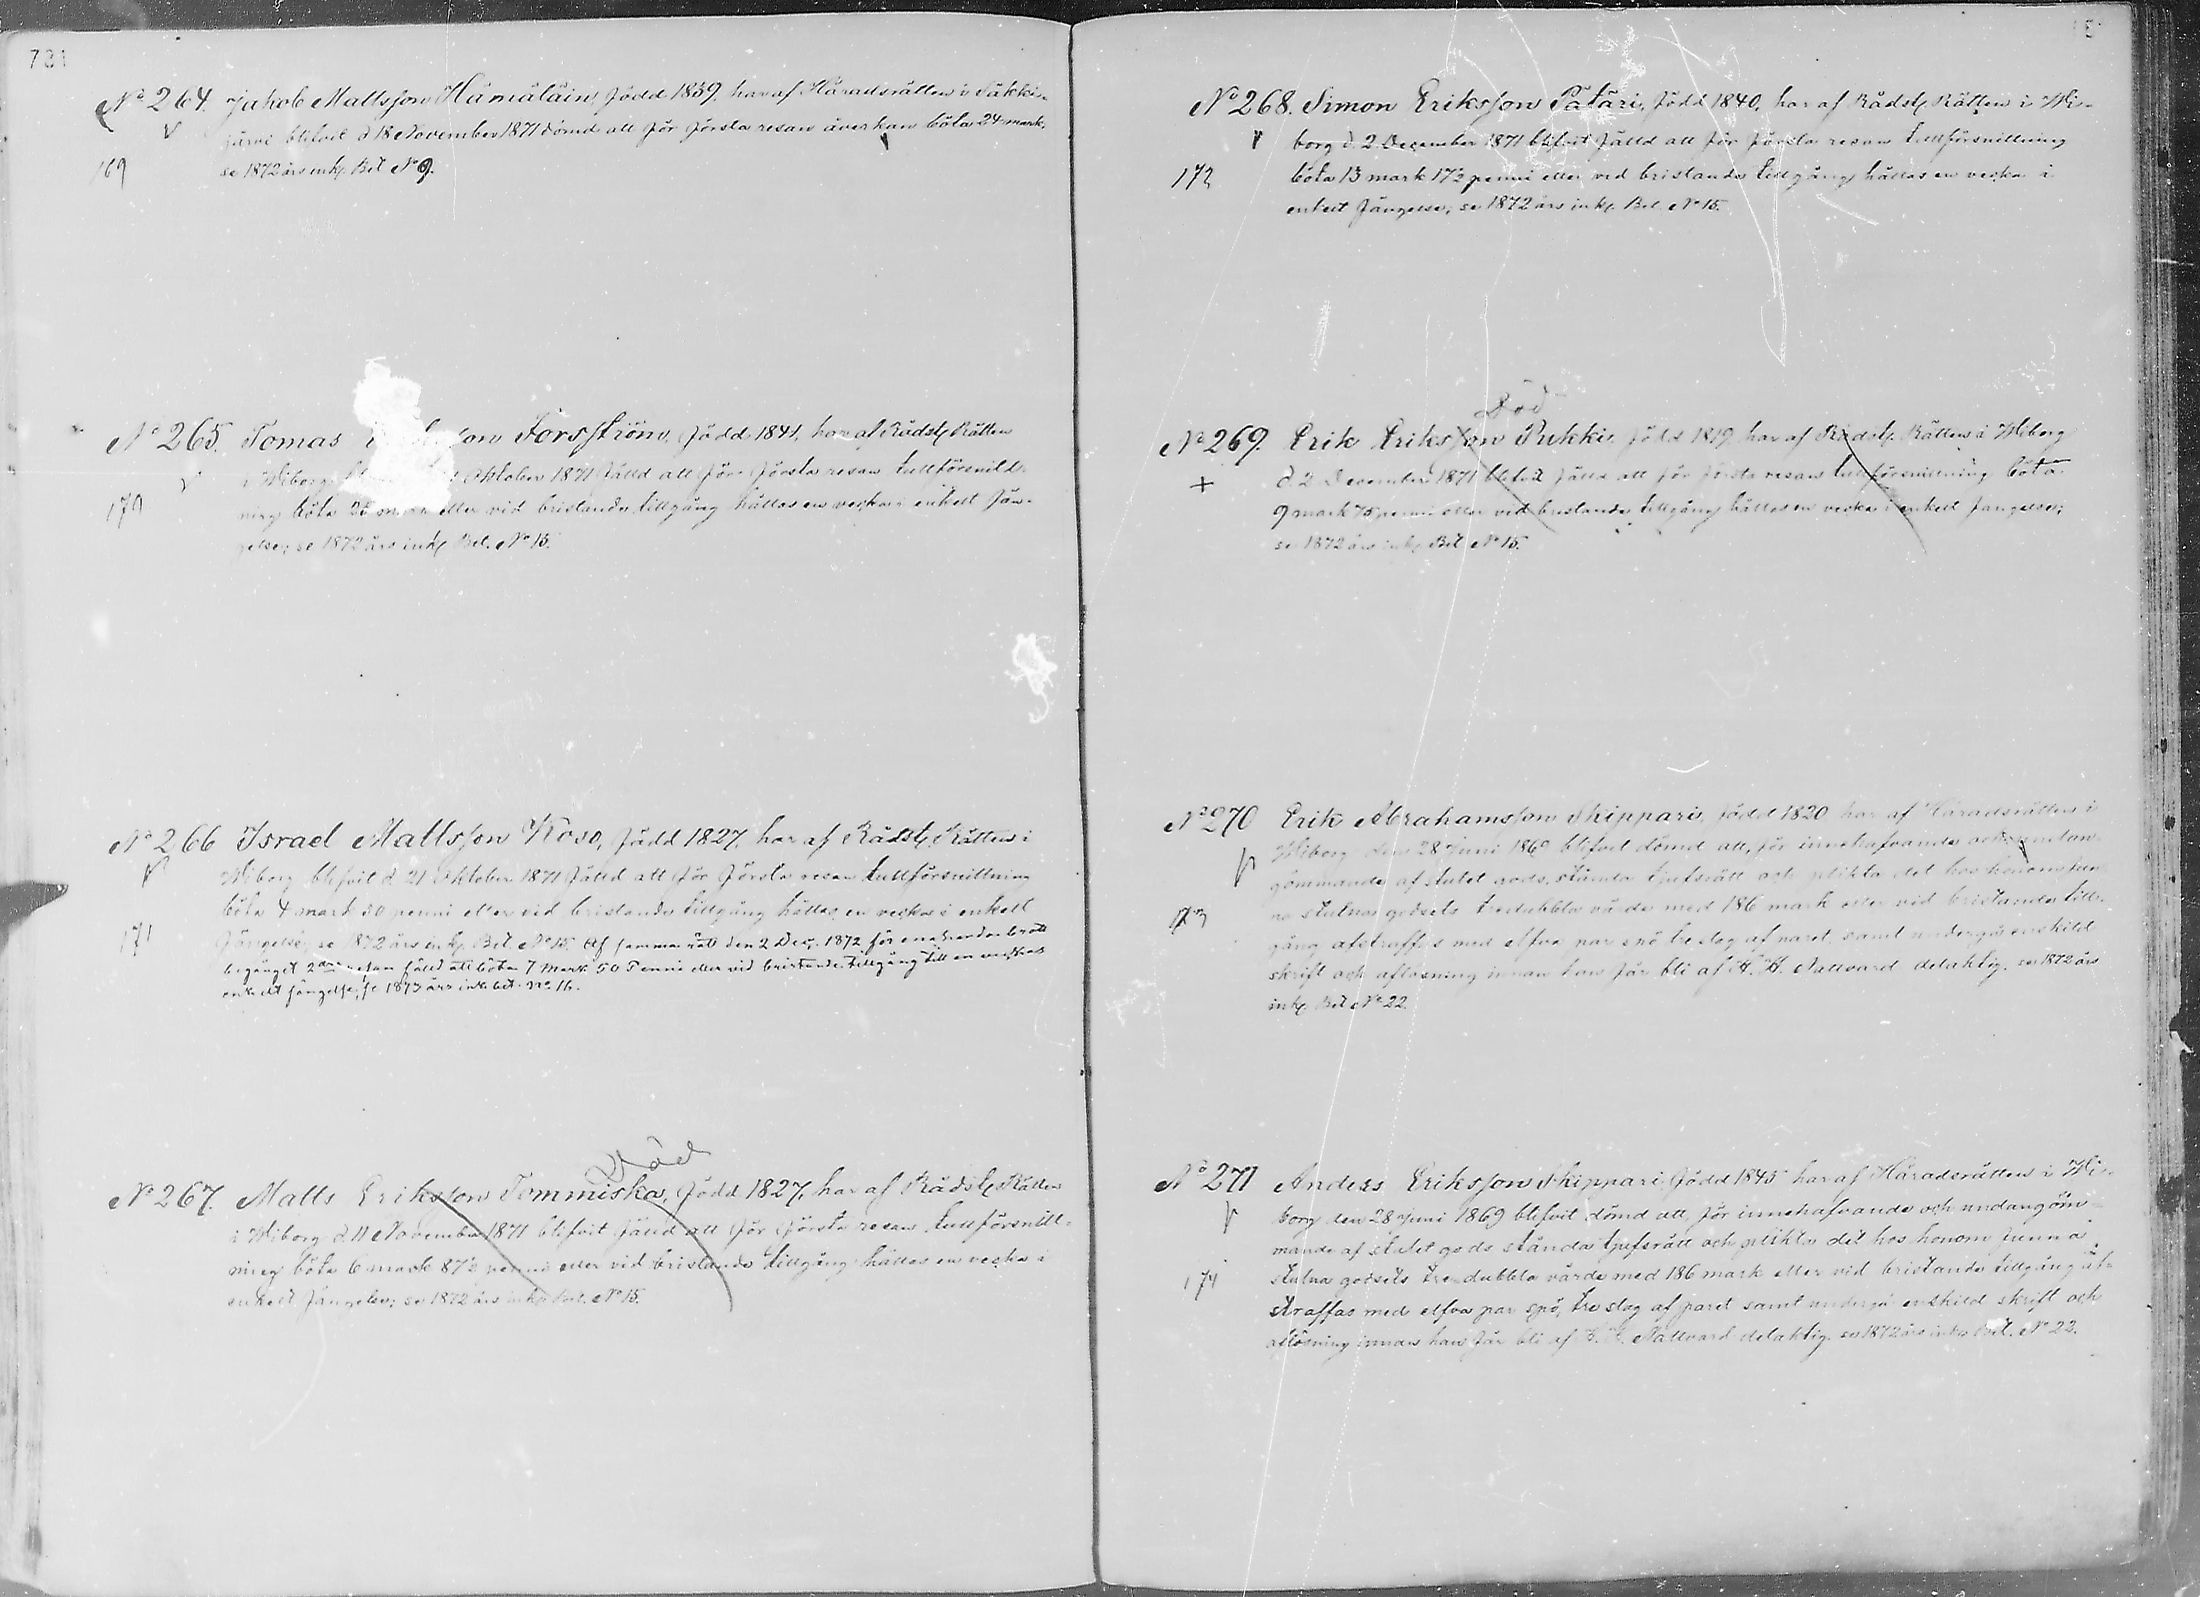 721
No 264. Jakob Mattsson Hämäläin, född 1839, har af Häradsrätten i Säkki-
järvi blifvit d 18 November 1871 dömd att för första resan åverkan böta 24 mark,
169
se 1872 års ink. Bil No 9.
No 265. Tomas son Forsström, född 1841, har af Rådst. Rätten
i Wiborg Oktober 1871 fälld att för första resan tullförsnill-
170
ning böta 26 mark eller vid bristande tillgång hållas en vecka i enkelt fän-
gelse; se 1872 års ink. Bil. No 15.
No 266 Israel Mattsson Koso, född 1827, har af Rådst. Rätten i
Wiborg blifvit d 21 Oktober 1871 fälld att för första resan tullförsnillning
böta 4 mark 50 penni eller vid bristande tillgång hållas en vecka i enkelt
171
fängelse, se 1872 års ink. Bil No 15. Af samma rätt den 2 Dec. 1872 för enahanda brott
begånget 2dra resan fälld att böta 7 Mark 50 Penni eller vid bristande tillgång till en veckas
enkelt fängelse, se 1873 års ink. bil. No 16.
Död
No 267. Matts Eriksson Tommiska, född 1827, har af Rådst. Rätten
i Wiborg d 11 November 1871 blifvit fälld att för första resan tullförsnill-
ning böta 6 mark 87½ penni eller vid bristande tillgång hållas en vecka i
enkelt fängelse; se 1872 års ink. Bil. No 15.
No 268. Simon Eriksson Pätäri, född 1840, har af Rådst. Rätten i Wi-
borg d. 2 December 1871 blifvit fälld att för första resan tullförsnillning
172
böta 13 mark 17½ penni eller vid bristande tillgång hållas en vecka i
enkelt fängelse, se 1872 års ink. Bil. No 15.
Död
No 269. Erik Eriksson Pukki, född 1819, har af Rådst. Rätten i Wiborg
+ d. 2 December 1871 blifvit fälld att för första resan tullförsnillning böta
9 mark 75 penni eller vid bristande tillgång hållas en vecka i enkelt fängelse;
se 1872 års ink. Bil No 15.
No 270 Erik Abrahamsson Skippari, född 1820 har af Häradsrätten i
Wiborg den 28 Juni 1869 blifvit dömd att, för innehafvande och undan-
gömmande af stulet gods, stånda tjufsrätt och plikta det hos honom fun-
173
na stulna godsets tredubbla värde med 186 mark eller vid bristande till-
gång afstraffas med elfva par spö, tre slag af paret, samt undergå enskild
skrift och aflösning innan han får bli af H. H. Nattvard delaktig. se 1872 års
ink. Bil No 22.
No 271 Anders Eriksson Skippari, född 1845 har af Häradsrätten i Wi-
borg den 28 Juni 1869 blifvit dömd att för innehafvande och undangöm-
mande af stulet gods stånda tjufsrätt och plikta det hos honom funna
174
stulna godsets tre-dubbla värde med 186 mark eller vid bristande tillgång af-
straffas med elfva par spö, tre slag af paret samt undergå enskild skrift och
aflösning innan han får bli af H. H. Nattvard delaktig. se 1872 års ink. Bil. No 22.